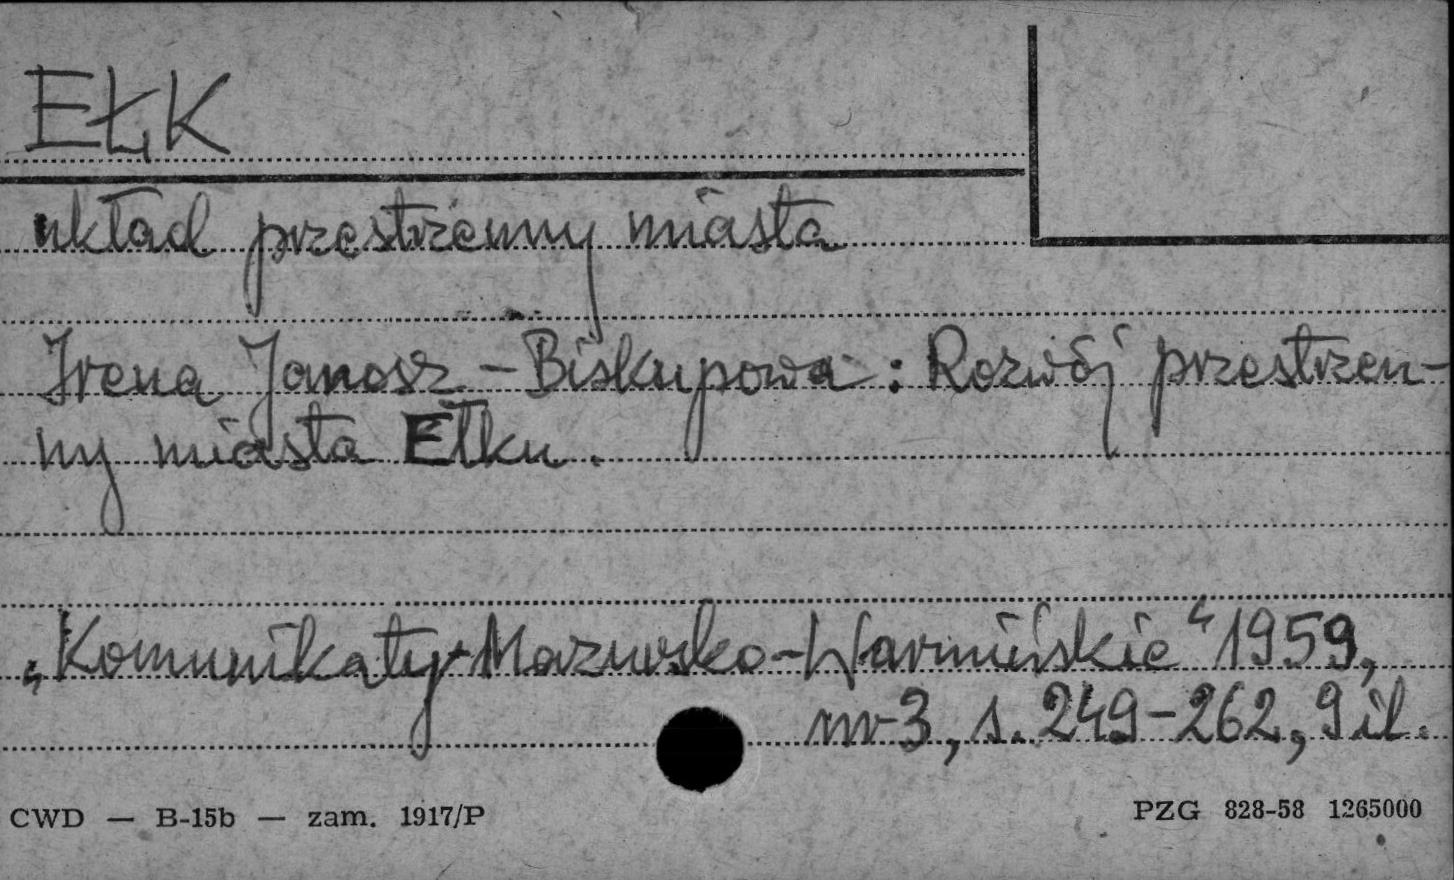 EŁK
układ przestrzenny miasta
Irena Janosz-Biskupowa: Rozwój przestrzen-
ny miasta Ełku.
„Komunikaty Mazursko-Warmińskie" 1959,
nr 3, s. 249-262, 9 il.
CWD — B-15b — zam. 1917/P
PZG 828-58 1265000